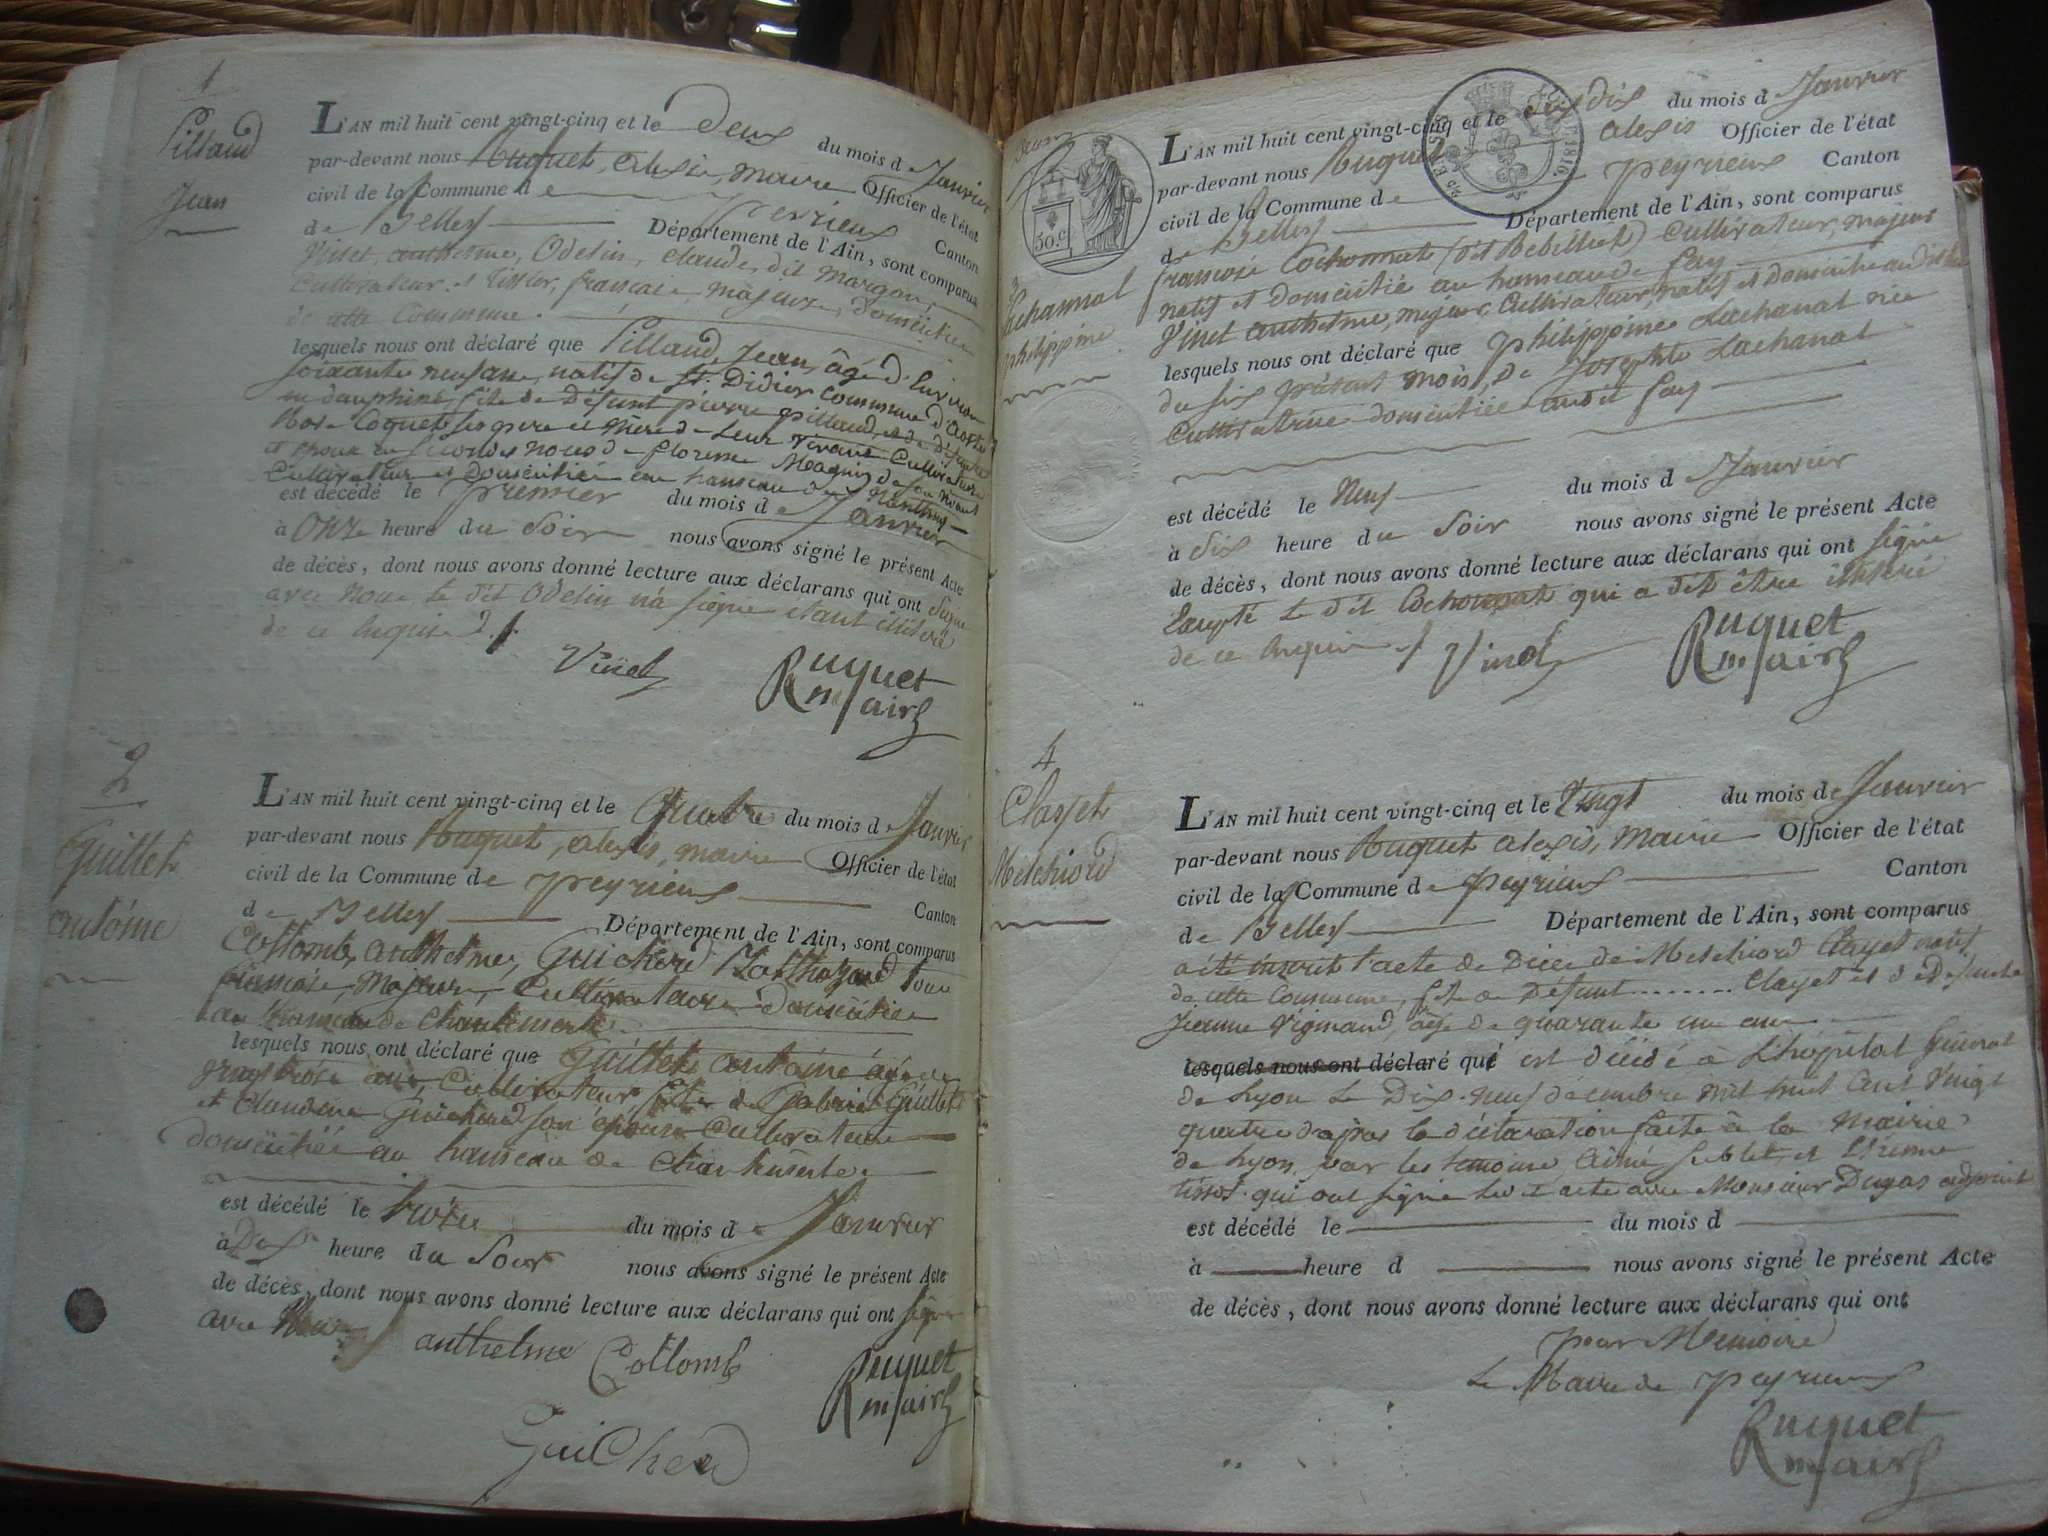 1
Pillaud
Jean
L'AN mil huit cent vingt-cinq et le Deux du mois de Janvier
par-devant nous Ruquet, alexis, maire Officier de l'état
civil de la Commune de Peyrieux Canton
de Belley Département de l'Ain, sont comparus
Vinet, anthelme, Odelin, claude, dit
Cultivateur et tissier, français, majeurs, domiciliés
de cette Commune.
lesquels nous ont déclaré que Pillaud, Jean, âgé d'Environ
soixante neuf ans, natif de St. Didier Commune d'aoste
en dauphiné, fils de Défunt pierre pillaud, et de Défunte
Rose Coquet ses père et mère de Leur vivant Cultivateurs
et époux en secondes noces de florence Magnin de son vivant
Cultivateur et Domicilié au hameau de
est décédé le premier du mois de Janvier
à Onze heure du Soir nous avons signé le présent Acte
de décès, dont nous avons donné lecture aux déclarans qui ont Signé
avec Nous le dit Odelin n'a signé étant illitéré
de ce Requis
Vinet
Ruquet
maire
2
Guillet
antoine
L'AN mil huit cent vingt-cinq et le Quatre du mois de Janvier
par-devant nous Ruquet, alexis, maire Officier de l'état
civil de la Commune de Peyrieux Canton
de Belley Département de l'Ain, sont comparus
Collomb, anthelme, Guicherd Balthazard tous
français, Majeurs, Cultivateurs Domiciliés
au hameau de Chantemerle
lesquels nous ont déclaré que Guillet antoine âgé de
ans, Cultivateur fils de Gabriel Guillet
et Claudine Guicherd son épouse Cultivateurs
domiciliés au hameau de Chantemerle.
est décédé le trois du mois de Janvier
à Dix heure du Soir nous avons signé le présent Acte
de décès, dont nous avons donné lecture aux déclarans qui ont signé
avec Nous
anthelme Collomb
Ruquet
maire
Guicherd
50. c.
1816
3
Lachanal
philippine
L'AN mil huit cent vingt-cinq et le dix du mois de Janvier
par-devant nous Ruquet alexis Officier de l'état
civil de la Commune de Peyrieux Canton
de Belley Département de l'Ain, sont comparus
françois Cochonnat (dit Bebillet) Cultivateur, majeur
natif et Domicilié au hameau de fay
Vinet anthelme, majeur, Cultivateur, natif et Domicilié au dit lieu
lesquels nous ont déclaré que Philippine Lachanal née
du six présent mois, de Josephte Lachanal
Cultivatrice domiciliée audit fay
est décédé le Neuf du mois de Janvier
à Six heure du Soir nous avons signé le présent Acte
de décès, dont nous avons donné lecture aux déclarans qui ont signé
Excepté le dit Cochonnat qui a dit être illitéré
de ce Requis
Vinet
Ruquet
maire
4
Clayet
Melchiord
L'AN mil huit cent vingt-cinq et le Vingt du mois de Janvier
par-devant nous Ruquet alexis, maire Officier de l'état
civil de la Commune de Peyrieux Canton
de Belley Département de l'Ain, sont comparus
a été inscrit l'acte de Décès de Melchiord Clayet natif
de cette Commune, fils de Défunt ........ Clayet et de Défunte
Jeanne Vigniand, âgé de quarante un ans
lesquels nous ont déclaré que est décédé à l'hôpital Général
de Lyon le Dix-neuf décembre mil huit cent Vingt
quatre d'après la déclaration faite à la Mairie
de Lyon par les témoins Aimé Sublet, et Etienne
tissot qui ont signé ledit acte avec Monsieur Dugas adjoint
est décédé le du mois d
à heure d nous avons signé le présent Acte
de décès, dont nous avons donné lecture aux déclarans qui ont
pour Memoire
Le Maire de Peyrieux
Ruquet
maire